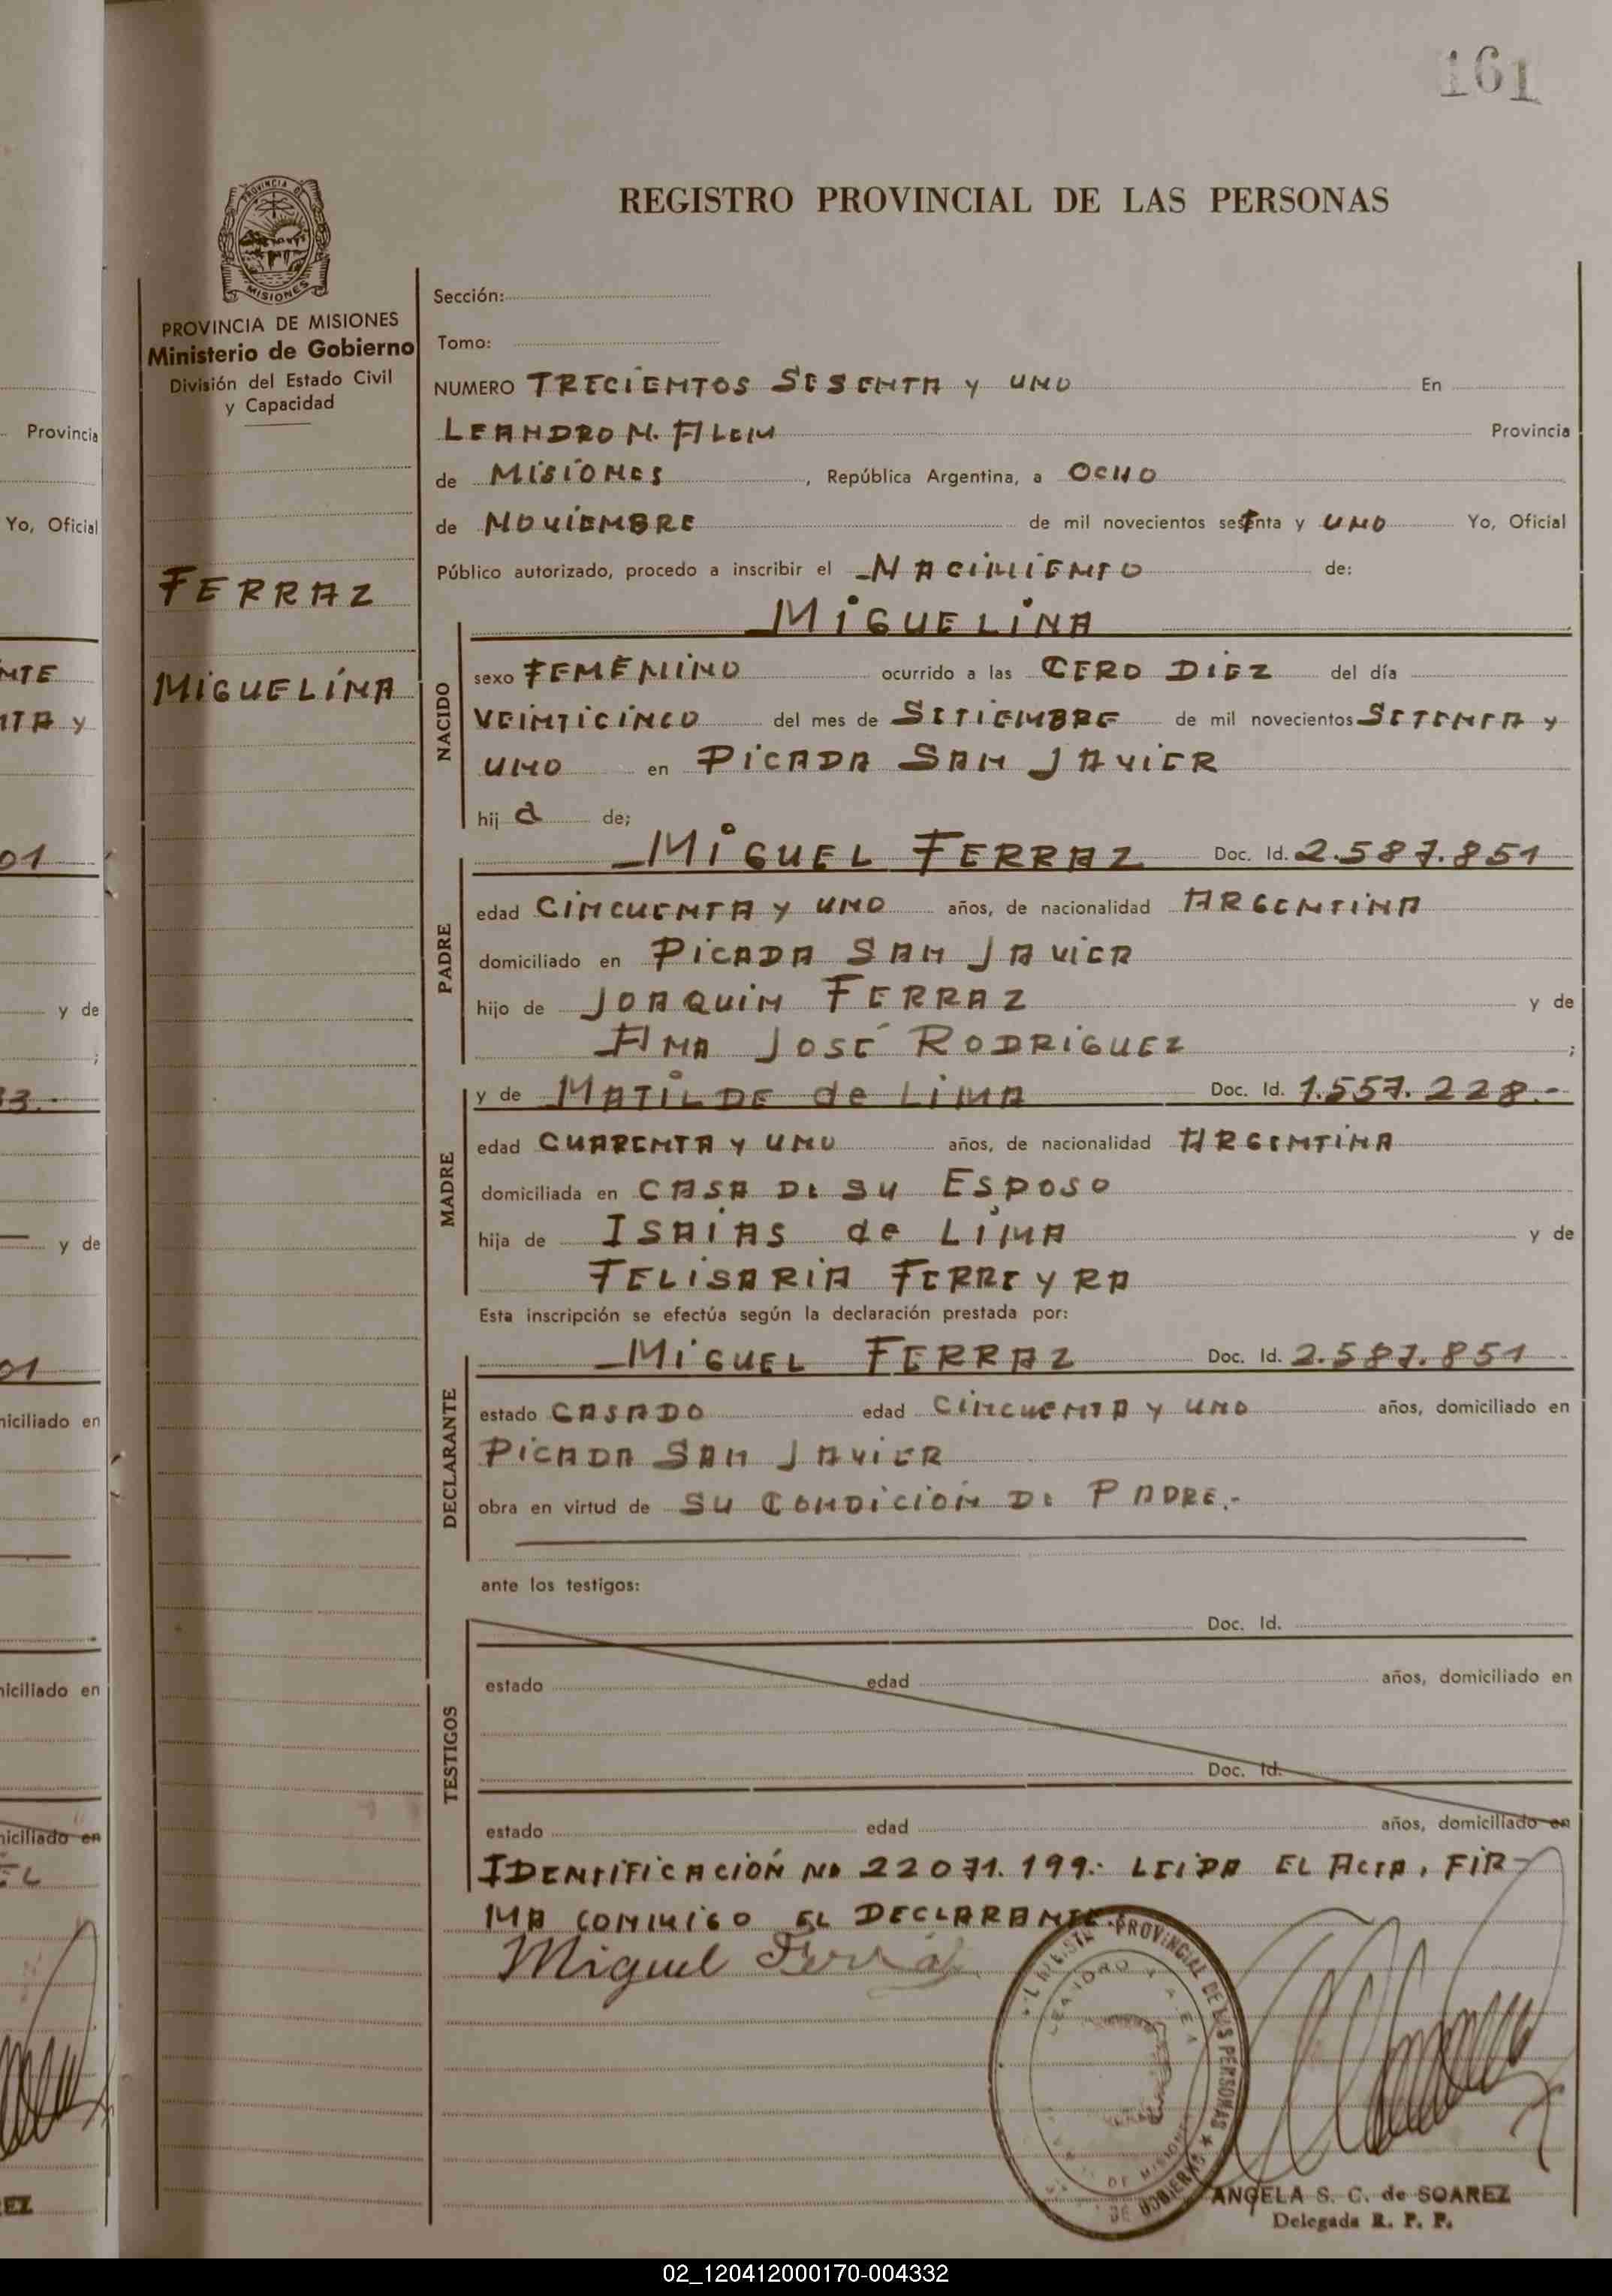 161
PROVINCIA DE
MISIONES
REGISTRO PROVINCIAL DE LAS PERSONAS
PROVINCIA DE MISIONES
Ministerio de Gobierno
División del Estado Civil
y Capacidad
FERRAZ
MIGUELINA
Sección:
Tomo:
NUMERO TRECIENTOS SESENTA y UNO En
LEANDRO N. ALEM Provincia
de MISIONES, República Argentina, a OCHO
de NOVIEMBRE de mil novecientos setenta y UNO Yo, Oficial
Público autorizado, procedo a inscribir el NACIMIENTO de:
MIGUELINA
NACIDO
sexo FEMENINO ocurrido a las CERO DIEZ del día
VEINTICINCO del mes de SETIEMBRE de mil novecientos SETENTA y
UNO en PICADA SAN JAVIER
hij a de;
MIGUEL FERRAZ Doc. Id. 2.587.851
PADRE
edad CINCUENTA y UNO años, de nacionalidad ARGENTINA
domiciliado en PICADA SAN JAVIER
hijo de JOAQUIN FERRAZ y de
ANA JOSÉ RODRIGUEZ ;
y de MATILDE de LIMA Doc. Id. 1.557.228.-
MADRE
edad CUARENTA y UNO años, de nacionalidad ARGENTINA
domiciliada en CASA DE SU ESPOSO
hija de ISAIAS de LIMA y de
FELISARIA FERREYRA
Esta inscripción se efectúa según la declaración prestada por:
MIGUEL FERRAZ Doc. Id. 2.587.851
DECLARANTE
estado CASADO edad CINCUENTA y UNO años, domiciliado en
PICADA SAN JAVIER
obra en virtud de SU CONDICIÓN DE PADRE.-
ante los testigos:
Doc. Id.
TESTIGOS
estado edad años, domiciliado en
Doc. Id.
estado edad años, domiciliado en
IDENTIFICACIÓN No 22071.199.- LEIDA EL ACTA, FIR-
MA CONMIGO EL DECLARANTE.
Miguel Ferraz
PROVINCIAL DE LAS PERSONAS
DE MISIONES
ANGELA S. C. de SOAREZ
Delegada R. P. P.
Provincia
Yo, Oficial
NTE
NTA y
01
y de
;
y de
01
niciliado en
niciliado en
niciliado en
EL
EZ
02_120412000170-004332